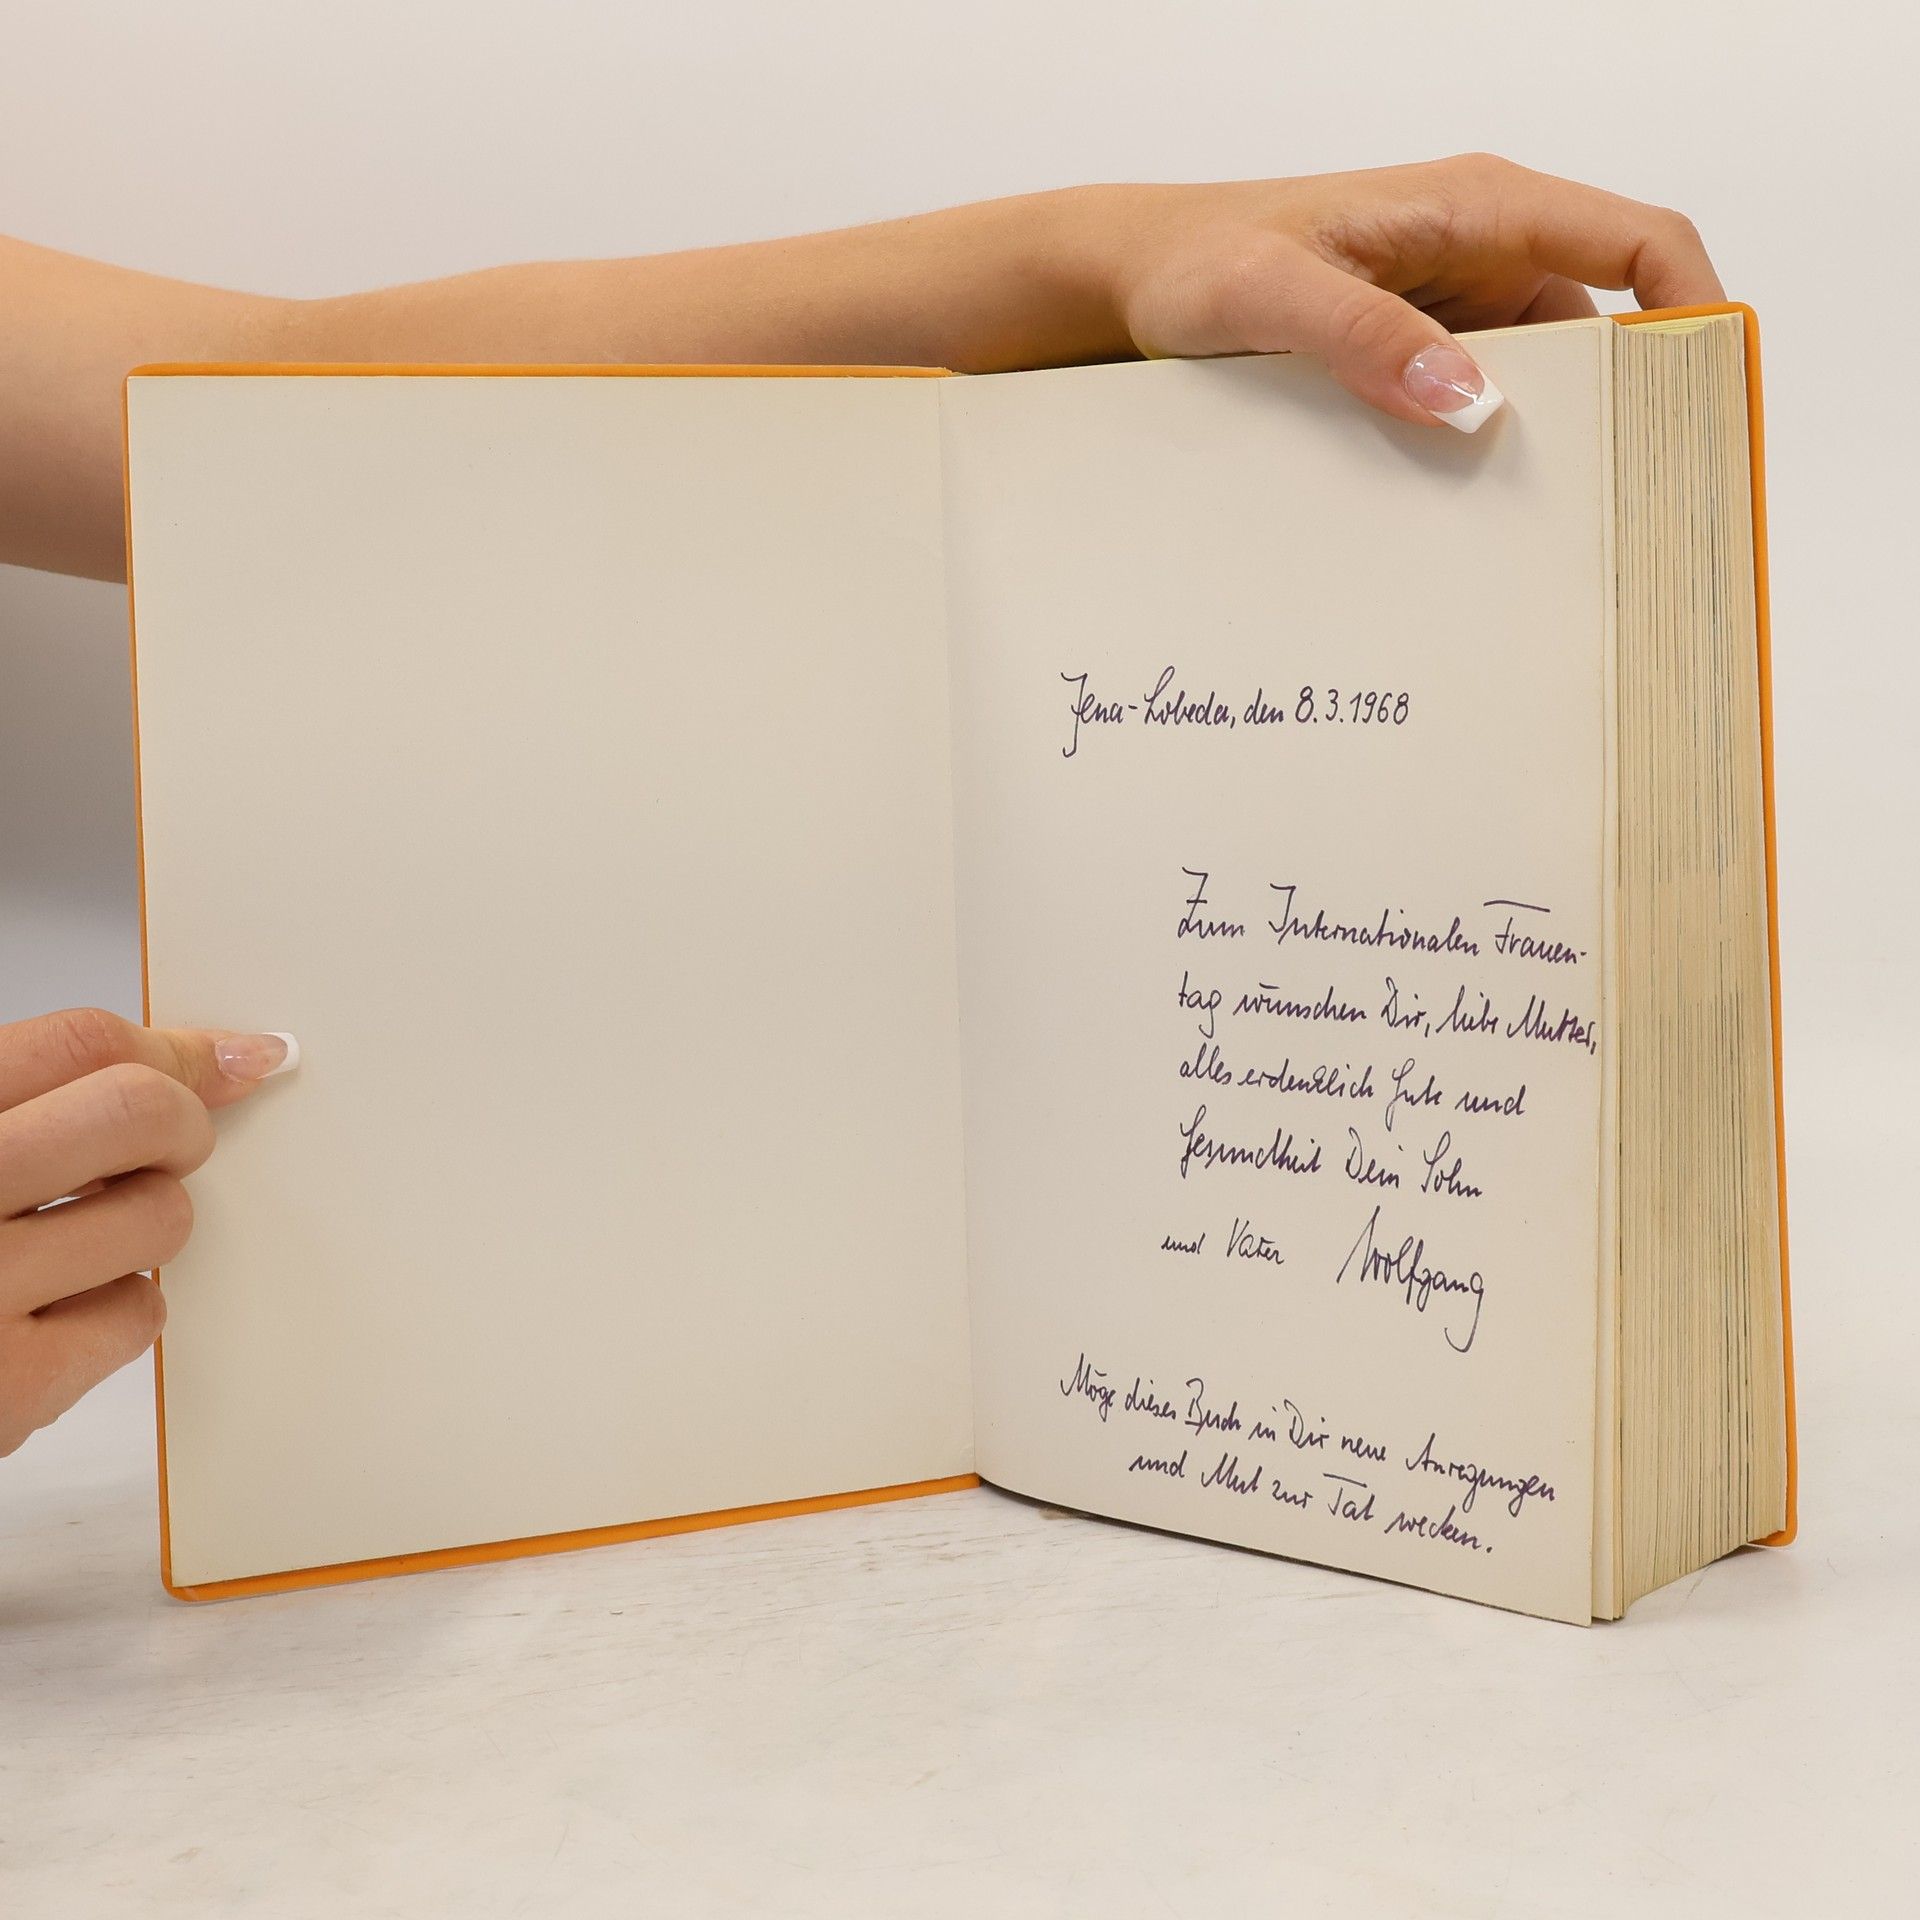 Jena-Lobeda, den 8.3.1968
Zum Internationalen Frauen-
tag wünschen Dir, liebe Mutter,
alles erdenklich Gute und
Gesundheit Dein Sohn
und Vater Wolfgang
Möge dieses Buch in Dir neue Anregungen
und Mut zur Tat wecken.